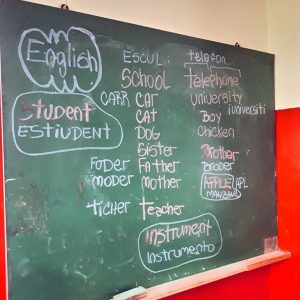 English
ESCUL: telefon
School telephone
CARR CAR university
iunversiti
Student CAT Boy
ESTIUDENT DOG Chicken
Sister Brother
FODER Father Broder
MODER mother APPLE APL
MANZANA
TICHER Teacher
Instrument
Instrumento